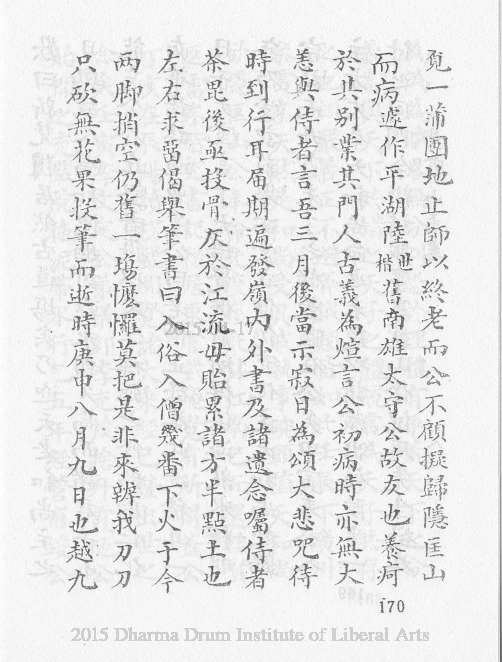 覓一蒲團地止師以終老而公不顧擬歸隱匡山
而病遽作平湖陸世楷舊南雄太守公故友也養疴
於其别業其門人古義為煊言公初病時亦無大
恙與侍者言吾三月後當示寂日為頌大悲咒待
時到行耳届期遍發嶺內外書及諸遺念囑侍者
茶毘後亟投骨灰於江流毋貽累諸方半點土也
左右求畱偈舉筆書曰入俗入僧幾番下火于今
两脚捎空仍舊一塲懡㦬莫把是非來辨我刀刀
只砍無花果投筆而逝時庚申八月九日也越九
170
2015 Dharma Drum Institute of Liberal Arts